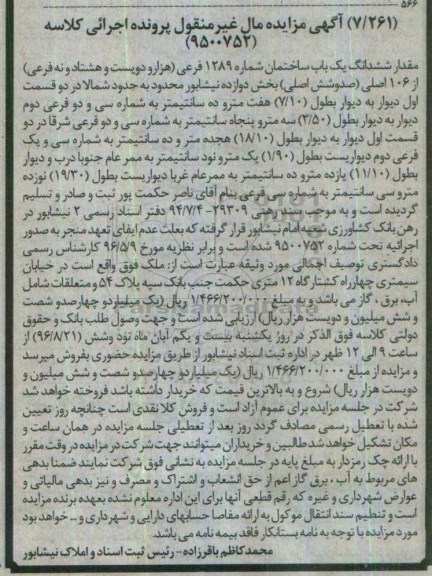 ۵۶۶
(۷/۲۶۱) آگهی مزایده مال غیرمنقول پرونده اجرائی کلاسه
(۹۵۰۰۷۵۲)
مقدار ششدانگ یک باب ساختمان شماره ۱۲۸۹ فرعی (هزارو دویست و هشتادو نه فرعی)
از ۱۰۶ اصلی (صدوشش اصلی) بخش دوازده نیشابور محدود به حدود شمالا در دو قسمت
اول دیوار به دیوار بطول (۷/۱۰) هفت مترو ده سانتیمتر به شماره سی و دو فرعی دوم
دیوار به دیوار بطول (۳/۵۰) سه مترو پنجاه سانتیمتر به شماره سی و دو فرعی شرقا در دو
قسمت اول دیوار به دیوار بطول (۱۸/۱۰) هجده متر و ده سانتیمتر به شماره سی و یک
فرعی دوم دیواریست بطول (۱/۹۰) یک مترو نود سانتیمتر به ممر عام جنوبا درب و دیوار
بطول (۱۱/۱۰) یازده مترو ده سانتیمتر به ممرعام غربا دیواریست بطول (۱۹/۳۰) نوزده
مترو سی سانتیمتر به شماره سی فرعی بنام آقای ناصر حکمت پور ثبت و صادر و تسلیم
گردیده است و به موجب سند رهنی ۲۹۳۰۹-۹۴/۷/۴ دفتر اسناد رسمی ۲ نیشابور در
رهن بانک کشاورزی شعبه امام نیشابور قرار گرفته که بعلت عدم ایفای تعهد منجر به صدور
اجرائیه تحت شماره ۹۵۰۰۷۵۲ شده است و برابر نظریه مورخ ۹۶/۵/۹ کارشناس رسمی
دادگستری توصیف اجمالی مورد وثیقه عبارت است از: ملک فوق واقع است در خیابان
سیمتری چهارراه کشتارگاه ۱۲ متری حکمت جنب بانک سپه پلاک ۵۴ و متعلقات شامل
آب، برق، گاز می باشد و به مبلغ ۱/۴۶۶/۲۰۰/۰۰۰ ریال (یک میلیاردو چهارصدو شصت
و شش میلیون و دویست هزار ریال) ارزیابی شده است و جهت وصول طلب بانک و حقوق
دولتی کلاسه فوق الذکر در روز یکشنبه بیست و یکم آبان ماه نود وشش (۹۶/۸/۲۱) از
ساعت ۹ الی ۱۲ ظهر در اداره ثبت اسناد نیشابور از طریق مزایده حضوری بفروش میرسد
و مزایده از مبلغ ۱/۴۶۶/۲۰۰/۰۰۰ ریال (یک میلیارد و چهارصدو شصت و شش میلیون و
دویست هزار ریال) شروع و به بالاترین قیمت که خریدار داشته باشد فروخته خواهد شد
شرکت در جلسه مزایده برای عموم آزاد است و فروش کلا نقدی است چنانچه روز تعیین
شده با تعطیل رسمی مصادف گردد روز بعد از تعطیلی جلسه مزایده در همان ساعت و
مکان تشکیل خواهد شد طالبین و خریداران میتوانند جهت شرکت در مزایده در وقت مقرر
با ارائه چک رمزدار به مبلغ پایه در جلسه مزایده به نشانی فوق شرکت نمایند ضمنا بدهی
های مربوط به آب، برق گاز اعم از حق انشعاب و اشتراک و مصرف و نیز بدهی مالیاتی و
عوارض شهرداری و غیره که رقم قطعی آنها برای این اداره معلوم نشده بعهده برنده مزایده
است و تنظیم سند انتقال موکول به ارائه مفاصا حسابهای دارایی و شهرداری و... خواهد بود
مورد مزایده با توجه به نامه بستانکار فاقد بیمه نامه می باشد.
محمدکاظم باقرزاده - رئیس ثبت اسناد و املاک نیشابور